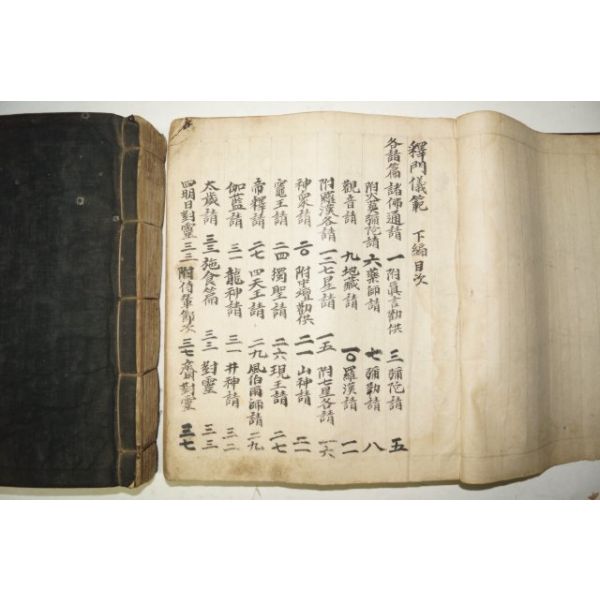 釋門儀範 下編目次
各請篇 諸佛通請 一 附眞言勸供 三 彌陀請 五
附 彌陀請 六 藥師請 七 彌勒請 八
觀音請 九 地藏請 一〇 羅漢請 一一
附羅漢各請 一二 七星請 一五 附七星各請 一六
神衆請 二〇 附中壇勸供 二一 山神請 二一
竈王請 二四 獨聖請 二六 現王請 二七
帝釋請 二七 四天王請 二九 風伯雨師請 二九
伽藍請 三一 龍神請 三一 井神請 三二
太歲請 三三 施食篇 三三 對靈 三三
四明日對靈 三三 附侍輦節次 三七 齋對靈 三七